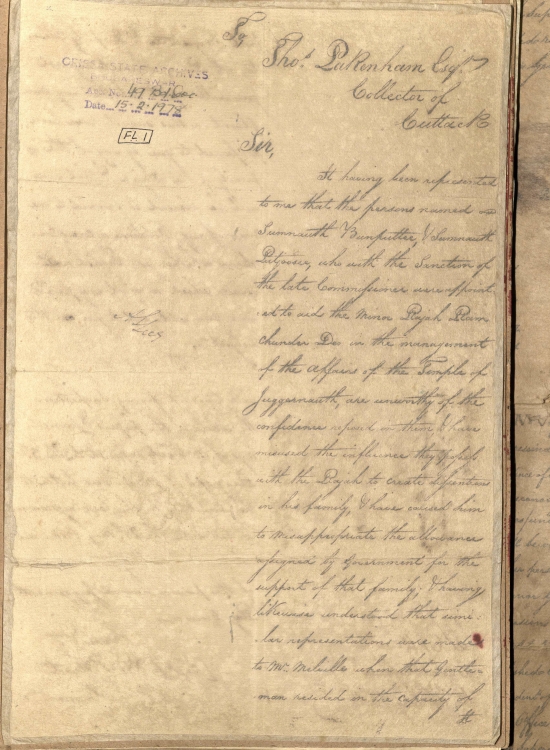 To,
Thos. Pakenham Esqr.
Collector of
Cuttack
ORISSA STATE ARCHIVES
Acc. No.
Date... 15-2-1978
FL 1
Sir,
It having been represented
to me that the persons named
Sumnauth Bunputtee, & Sumnauth
who with the Sanction of
the late Commissioner were appoint
ed to aid the Minor Rajah Ram
chunder Deo in the management
of the affairs of the Temple of
Juggernauth, are unworthy of the
confidence reposed in them & have
misused the influence they possess
with the Rajah to create dissentions
in his family, & have caused him
to misappropriate the allowance
assigned by Government for the
support of that family; & having
likewise understood that simi-
lar representations were made
to Mr. Melville when that Gentle-
man resided in the capacity of